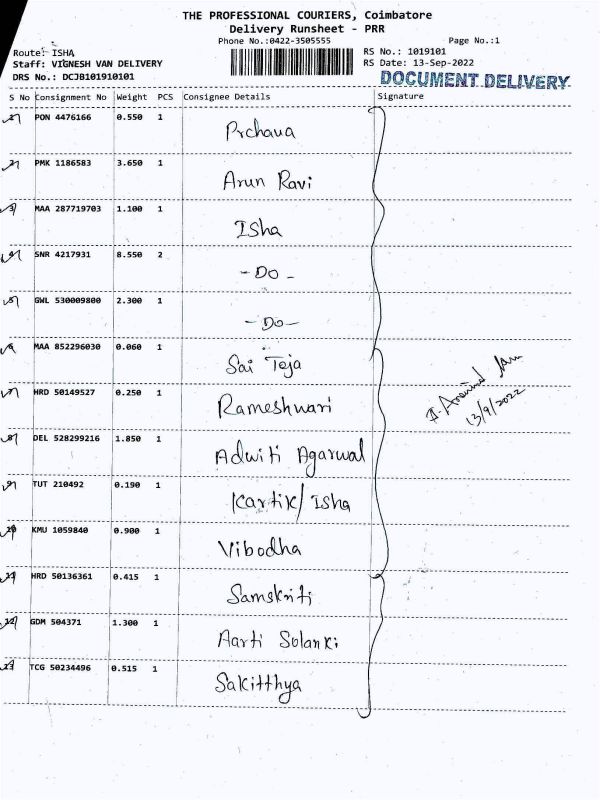 THE PROFESSIONAL COURIERS, Coimbatore
Delivery Runsheet - PRR
Phone No.:0422-3505555
Page No.:1
Route: ISHA
RS No.: 1019101
Staff: VIGNESH VAN DELIVERY
RS Date: 13-Sep-2022
DRS No.: DCJB101910101
DOCUMENT DELIVERY
S No Consignment No Weight PCS Consignee Details Signature
1 PON 4476166 0.550 1 Prchava
2 PMK 1186583 3.650 1 Arun Ravi
3 MAA 287719703 1.100 1 Isha
4 SNR 4217931 8.550 2 - DO -
5 GWL 530009800 2.300 1 - DO -
6 MAA 852296030 0.060 1 Sai Teja
7 HRD 50149527 0.250 1 Rameshwari
13/9/2022
8 DEL 528299216 1.850 1 Adwiti Agarwal
9 TUT 210492 0.190 1 Kartik/ Isha
10 KMU 1059840 0.900 1 Vibodha
11 HRD 50136361 0.415 1 Samskriti
12 GDM 504371 1.300 1 Aarti Solanki
13 TCG 50234496 0.515 1 Sakitthya